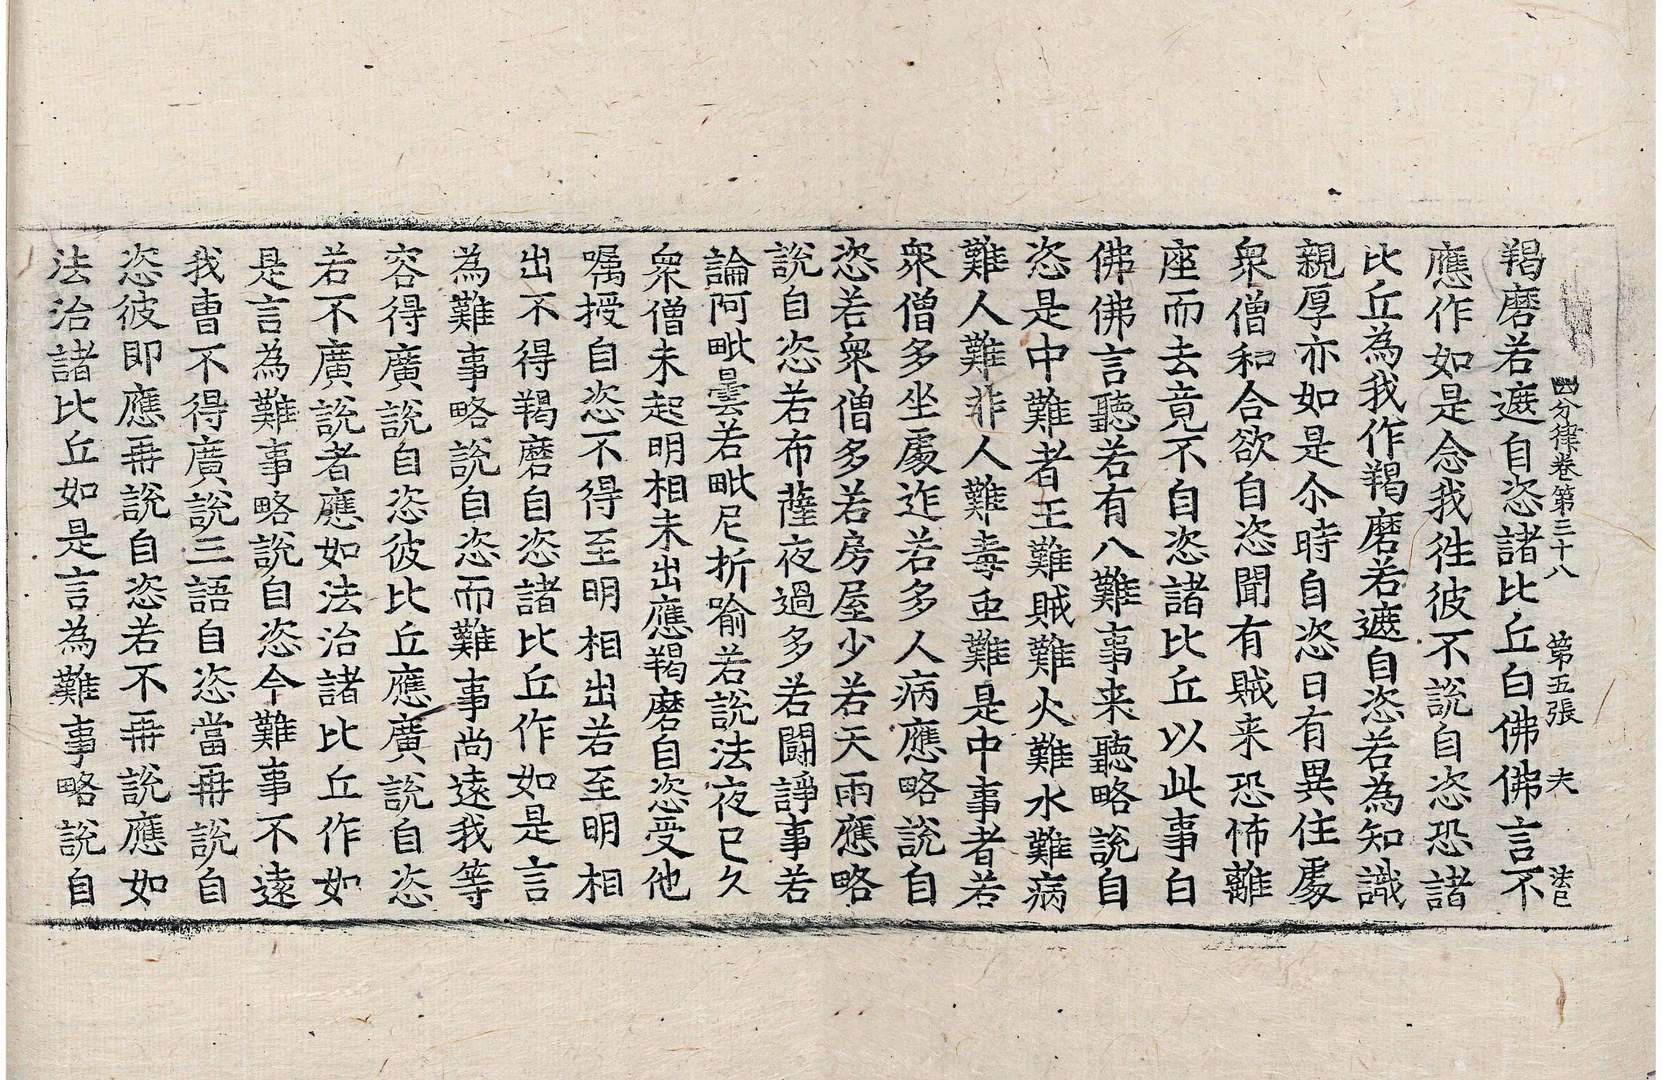 四分律卷第三十八 第五張 夫 法巳
羯磨若遮自恣諸比丘白佛佛言不
應作如是念我徃彼不說自恣恐諸
比丘為我作羯磨若遮自恣若為知識
親厚亦如是尒時自恣日有異住處
衆僧和合欲自恣聞有賊来恐怖離
座而去竟不自恣諸比丘以此事白
佛佛言聽若有八難事来聽略說自
恣是中難者王難賊難火難水難病
難人難非人難毒虫難是中事者若
衆僧多坐處迮若多人病應略說自
恣若衆僧多若房屋少若天雨應略
說自恣若布薩夜過多若鬪諍事若
論阿毗曇若毗尼折喻若說法夜已久
衆僧未起明相未出應羯磨自恣受他
嘱授自恣不得至明相出若至明相
出不得羯磨自恣諸比丘作如是言
為難事略說自恣而難事尚遠我等
容得廣說自恣彼比丘應廣說自恣
若不廣說者應如法治諸比丘作如
是言為難事略說自恣今難事不遠
我曹不得廣說三語自恣當再說自
恣彼即應再說自恣若不再說應如
法治諸比丘如是言為難事略說自